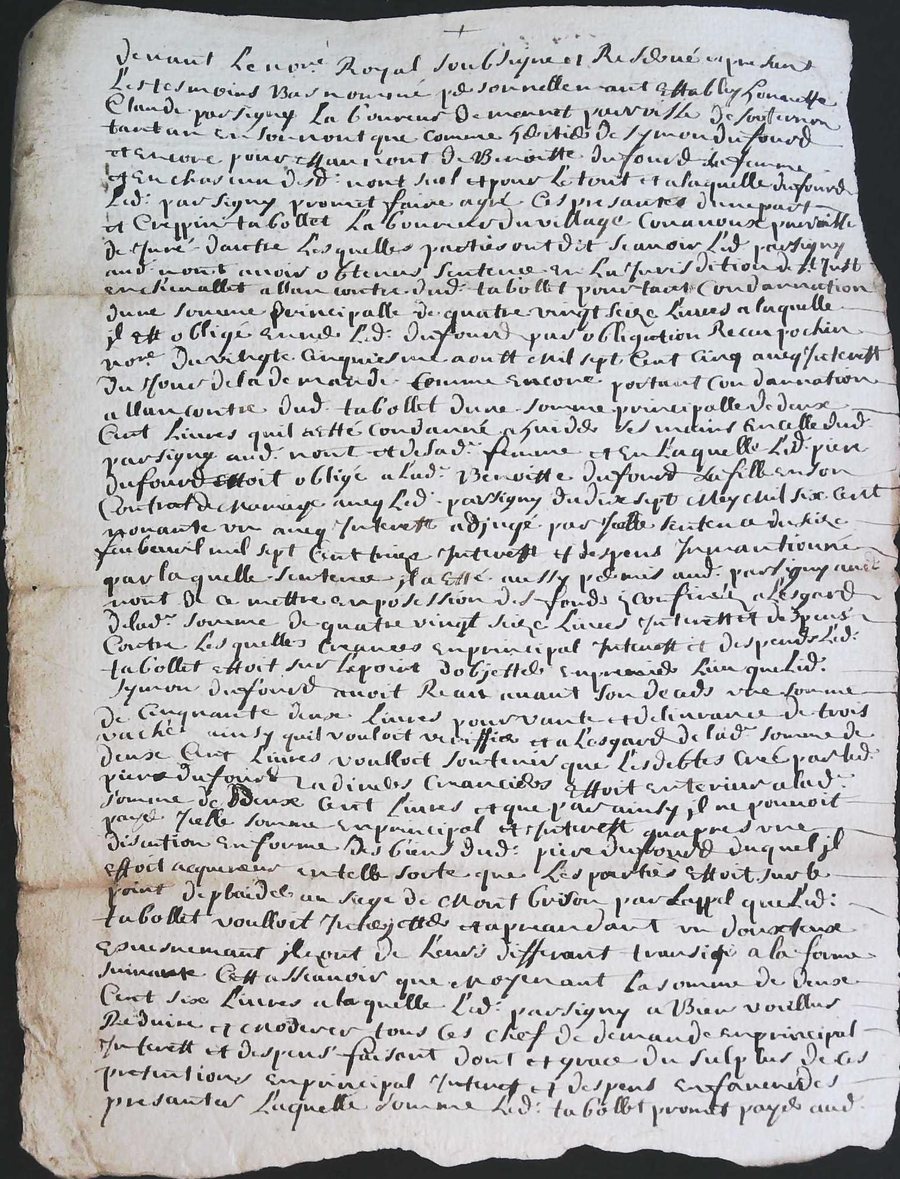 +
devant Le nore. Royal soubsigne et Reservé et presans
Les tesmoins Bas nommé personnellemant Estably honneste
Claude parsigny Laboureur demeurt parroisse de souternon
tant an son nom que comme heritier de symon dufourd
et encore pour et au nom de Benoitte dufourd sa femme
et en chascun desd: noms seul et pour le tout et a laquelle dufourd
Led: parsigny promet faire agreé Ces presantes dune part
et Creppin tabollet Laboureur du village parroisse
de Juré dautre Lesquelles parties ont dit scavoir Led parsigny
aud. nom avoir obtenus sentence en La Jurisdition de St Just
en chevallet allancontre dud: tabollet pourtant Condannation
dune somme principalle de quatre vingt seize Livres a laquelle
il est obligé envers Led: dufourd par obligation Receu pochin
nore. du vingte cinquiesme aoust mil sept Cent Cinq aveq Interest
du Jour de la demande Comme encore portant Condannation
allancontre dud: tabollet dune somme principalle de deux
Cent Livres quil a Esté Condanné a vuider ses mains en celle dud:
parsigny aud: nom et de sad: femme et en Laquelle Led: piere
dufourd Estoit obligé a Lad: Benoitte dufourd sa fille en son
Contrat de Mariage aveq Led: parsigny du dix sept May Mil six Cent
nonante un aveq Interest adjugé par Icelle sentence du seize
febvrier mil sept Cent Interest et despens Inmantionné
par laquelle sentence il a Esté aussy permis aud: parsigny aud:
nom de ce mettre en possession des fonds a Lesgard
de lad: somme de quatre vingt seize Livres Interest et despens
Contre Lesquelles Creances en principal Interest et despens Led:
tabollet Estoit sur Le point dobjetter en premier Lieu que Led:
symon dufourd avoit Receu avant son deceds une somme
de Cinquante deux Livres pour vante et delivrance de trois
vaches ainsy quil vouloit veriffier et a Lesgard de lad: somme de
deux Cent Livres voulloit soutenir que Les debtes Creé par led:
piere dufourd a divers Creanciers Estoit enterieur a lad:
somme de deux Cent Livres et que par ainsy il ne pouvoit
payé Icelle somme en principal et Interest quapres une
discution en forme des biens dud: piere dufourd duquel il
Estoit acquereur en telle sorte que Les parties Estoit sur le
point de plaider au siege de Montbrison par Lappel que Led:
tabollet voulloit Interjetter et apreandant un douxteux
Evenemant ils ont de Leurs differant transigé a la forme
suivante Cest assavoir que Moyenant La somme de deux
Cent six Livres a laquelle Led: parsigny a Bien voullus
Reduire et Moderer tous Ces Chef de demande en principal
Interest et despens faisant dont et grace du surplus de Ces
pretentions en principal Interest et despens en faveur des
presantes Laquelle somme Led: tabollet promet payer aud: